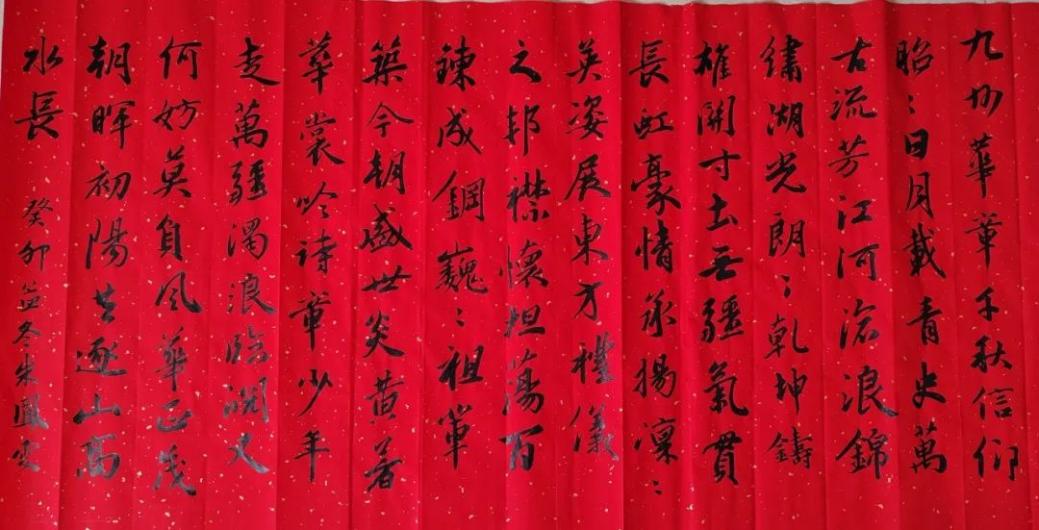 九州華章千秋信仰
昭〻日月載青史萬
古流芳江河滄浪錦
繡湖光朗〻乾坤鑄
雄關寸土無疆氣貫
長虹豪情承揚凜〻
英姿展東方禮儀
之邦襟懷坦蕩百
鍊成鋼巍〻祖輩
築今朝盛世炎黃著
華裳吟詩章少年
走萬疆濁浪臨淵又
何妨莫負風華正茂
朝暉初陽共逐山高
水長 癸卯孟冬朱鳳雲